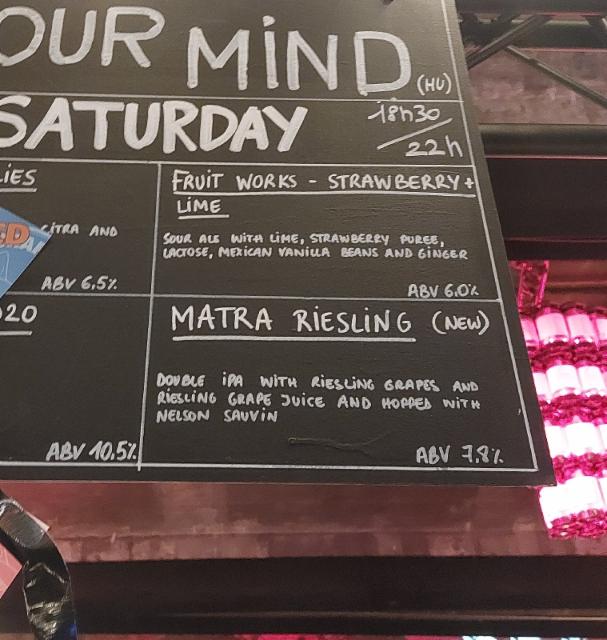 OUR MIND (HU)
SATURDAY 18h30 / 22h
IES
CITRA AND
ABV 6,5%
FRUIT WORKS - STRAWBERRY +
LIME
SOUR ALE WITH LIME, STRAWBERRY PUREE,
LACTOSE, MEXICAN VANILLA BEANS AND GINGER
ABV 6.0%
020
ABV 10.5%
MATRA RIESLING (NEW)
DOUBLE IPA WITH RIESLING GRAPES AND
RIESLING GRAPE JUICE AND HOPPED WITH
NELSON SAUVIN
ABV 7.8%